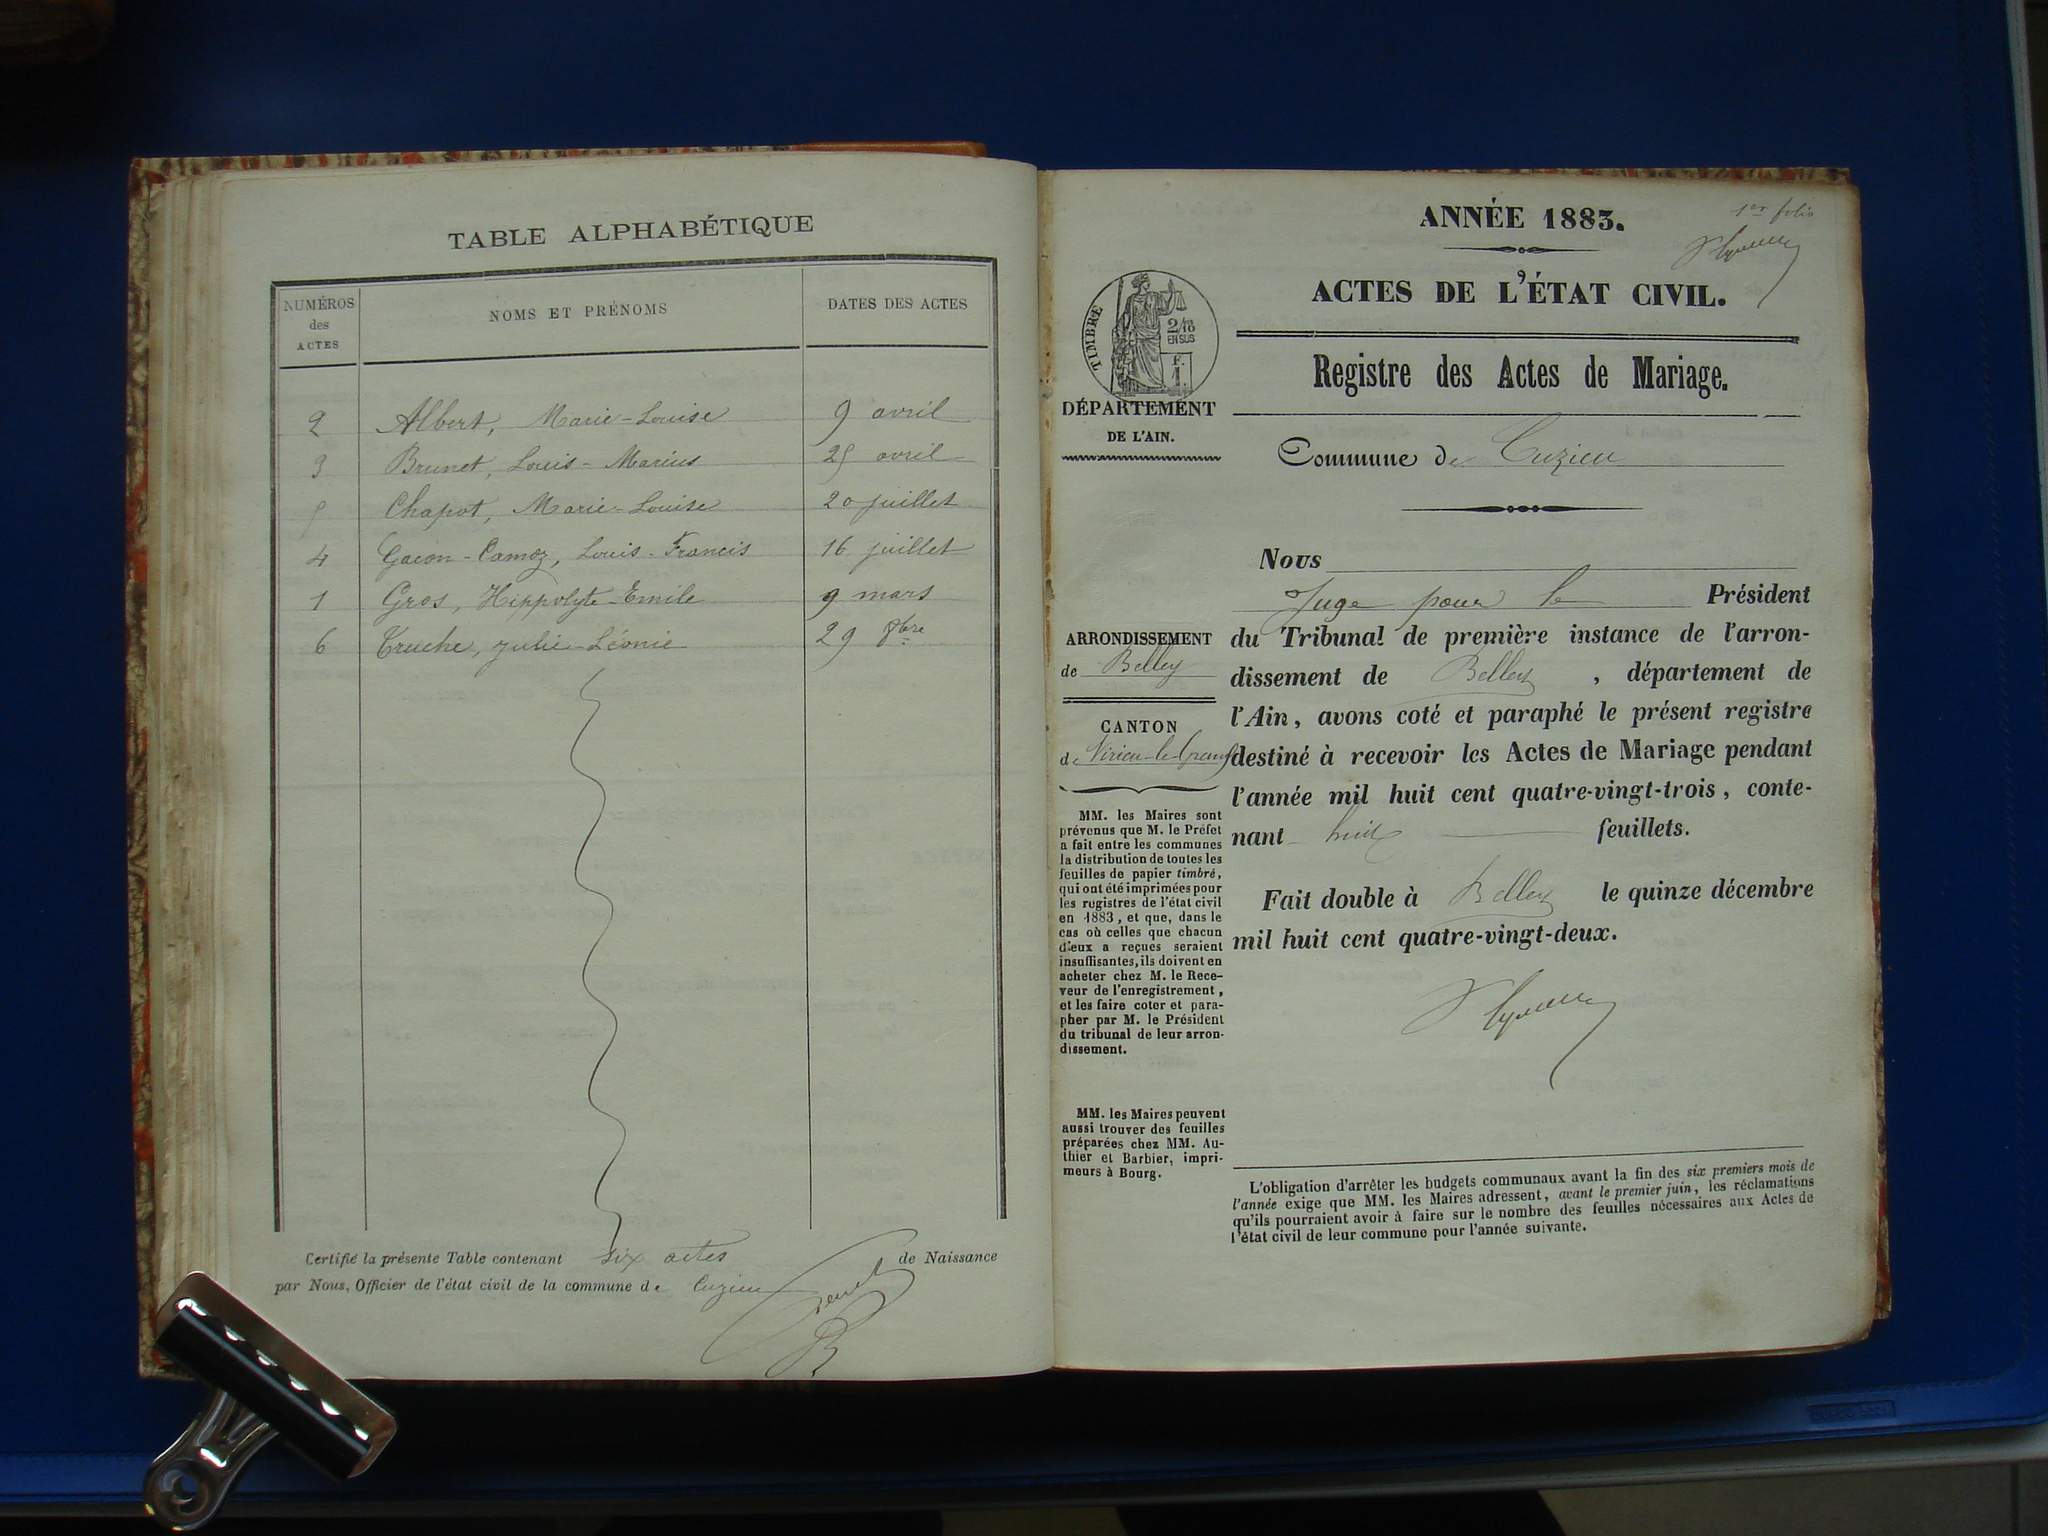 TABLE ALPHABÉTIQUE
NUMÉROS
des
ACTES
NOMS ET PRÉNOMS
DATES DES ACTES
2 Albert, Marie-Louise 9 avril
3 Brunet, Louis-Marius 25 avril
5 Chapot, Marie-Louise 20 juillet
4 Gacon-Camoz, Louis-Francis 16 juillet
1 Gros, Hippolyte-Emile 9 mars
6 Truche, Julie-Léonie 29 8bre
Certifié la présente Table contenant six actes de Naissance
par Nous, Officier de l'état civil de la commune de Cuzieu
1er folio
ANNÉE 1883.
ACTES DE L'ÉTAT CIVIL.
TIMBRE
2/10
EN SUS
F.
1.
Registre des Actes de Mariage.
DÉPARTEMENT
DE L'AIN.
Commune de Cuzieu
Nous
Juge pour le Président
du Tribunal de première instance de l'arron-
dissement de Belley, département de
l'Ain, avons coté et paraphé le présent registre
destiné à recevoir les Actes de Mariage pendant
l'année mil huit cent quatre-vingt-trois, conte-
nant huit feuillets.
Fait double à Belley le quinze décembre
mil huit cent quatre-vingt-deux.
ARRONDISSEMENT
de Belley
CANTON
de Virieu-le-Grand
MM. les Maires sont
prévenus que M. le Préfet
a fait entre les communes
la distribution de toutes les
feuilles de papier timbré,
qui ont été imprimées pour
les registres de l'état civil
en 1883, et que, dans le
cas où celles que chacun
d'eux a reçues seraient
insuffisantes, ils doivent en
acheter chez M. le Rece-
veur de l'enregistrement,
et les faire coter et para-
pher par M. le Président
du tribunal de leur arron-
dissement.
MM. les Maires peuvent
aussi trouver des feuilles
préparées chez MM. Au-
thier et Barbier, impri-
meurs à Bourg.
L'obligation d'arrêter les budgets communaux avant la fin des six premiers mois de
l'année exige que MM. les Maires adressent, avant le premier juin, les réclamations
qu'ils pourraient avoir à faire sur le nombre des feuilles nécessaires aux Actes de
l'état civil de leur commune pour l'année suivante.